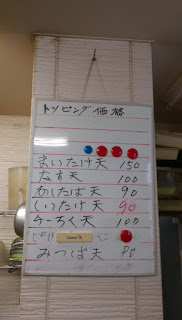 トッピング価格
まいたけ天 150
なす天 100
あしたば天 90
しいたけ天 90
ちくわ天 100
みつば天 90